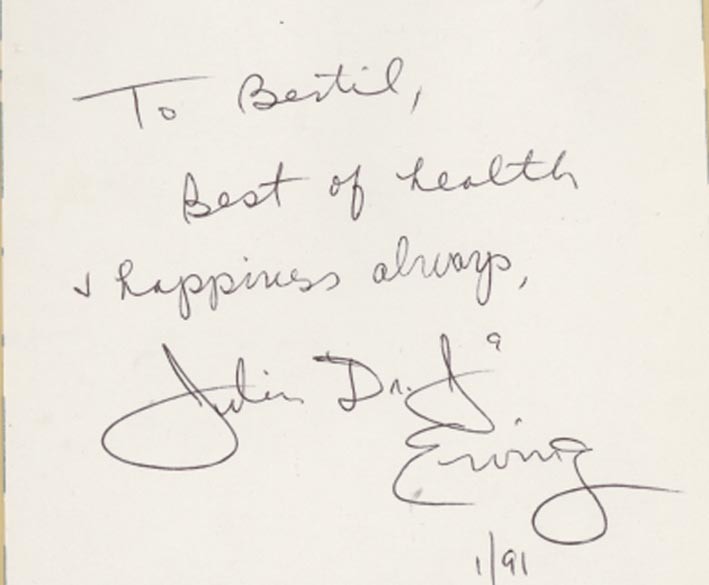 To Bertil,
Best of health
& happiness always,
Julius Dr. J"
Erving
1/91